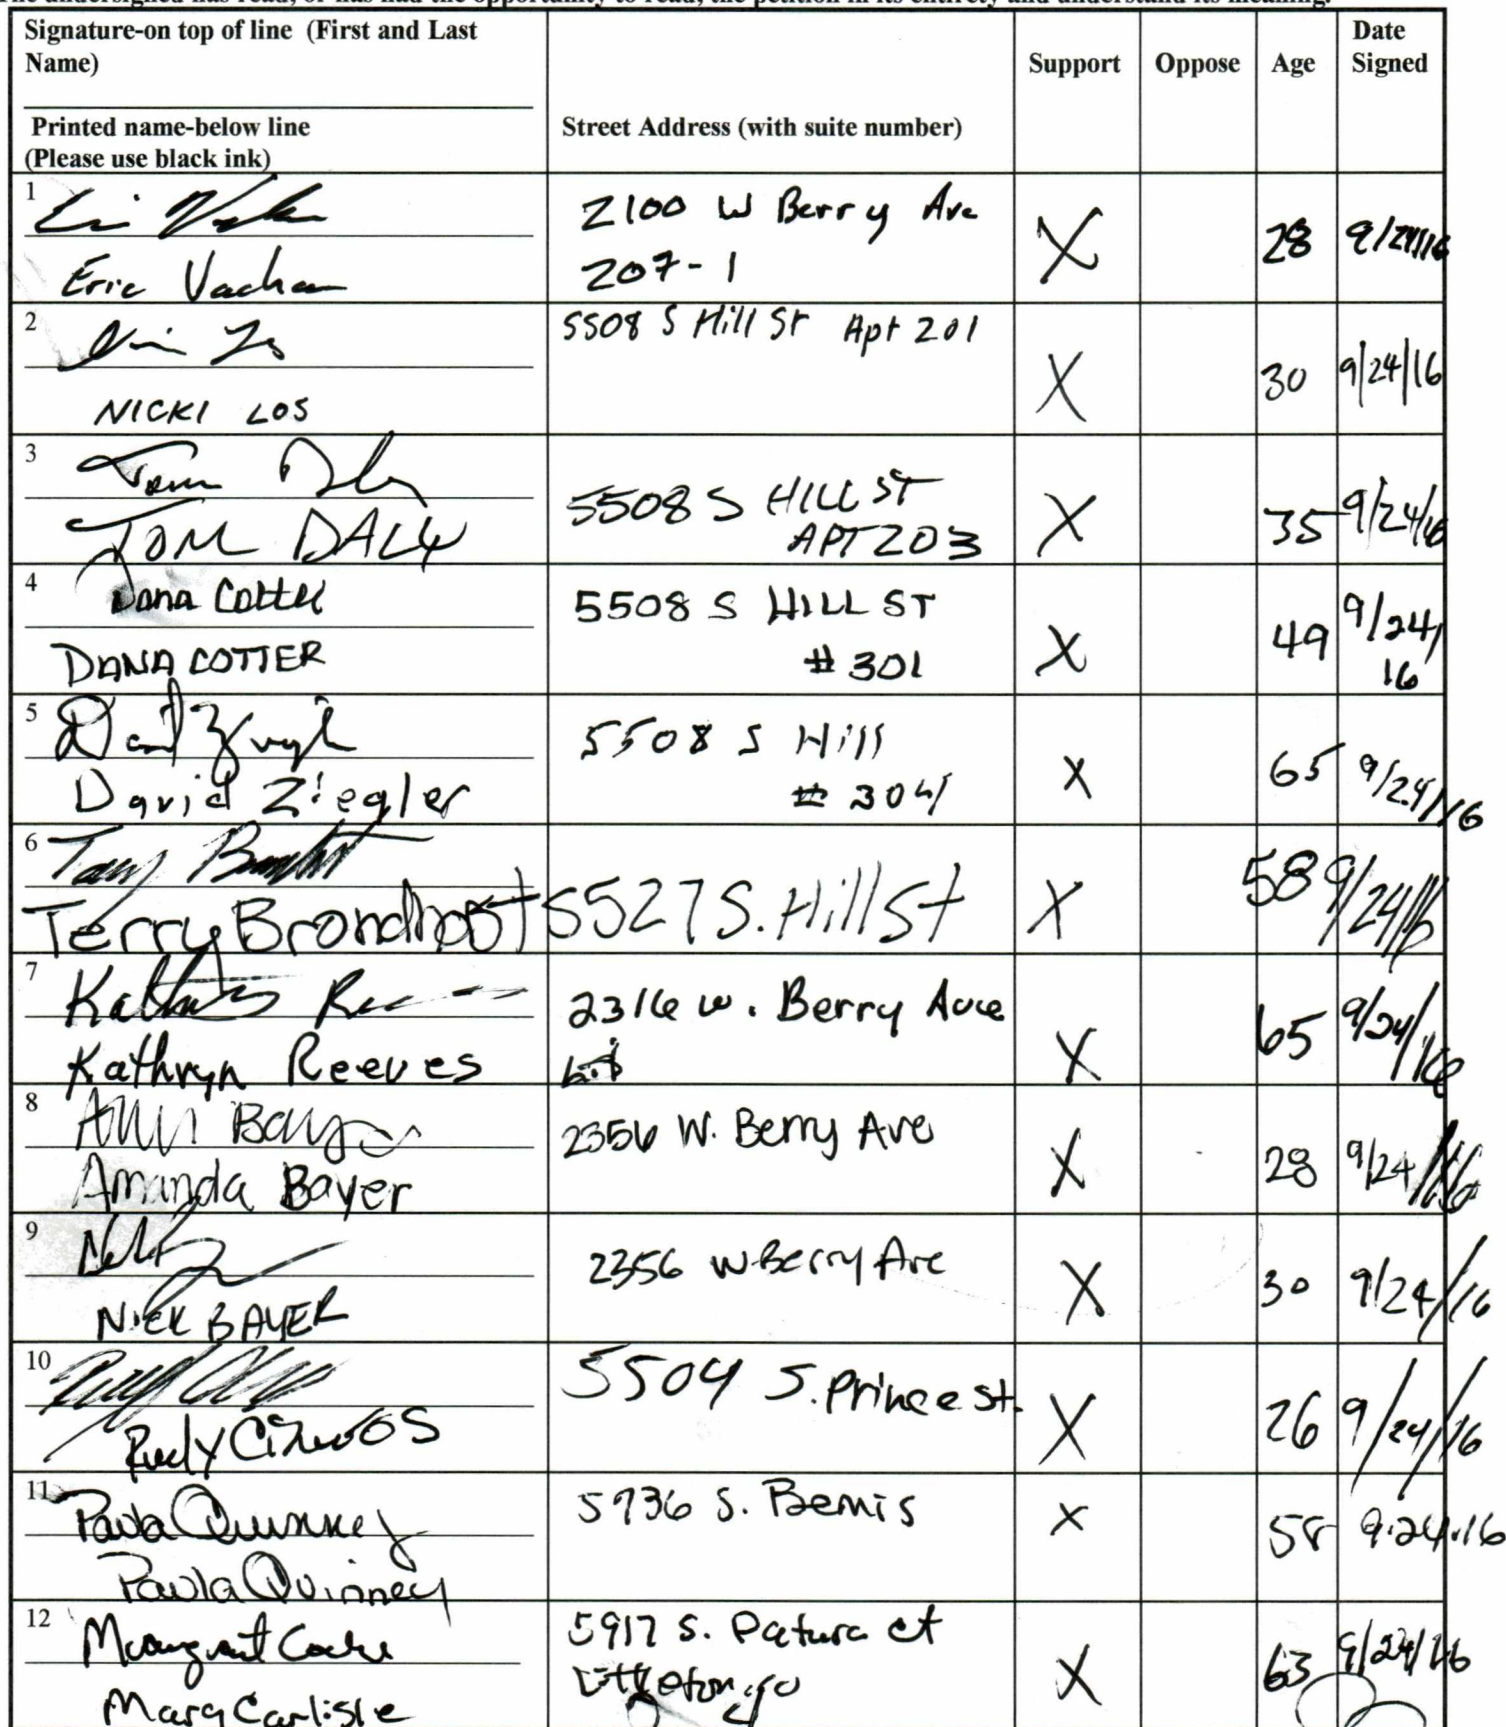 The undersigned has read, or has had the opportunity to read, the petition in its entirety and understand its meaning.
Signature-on top of line (First and Last Name)
Printed name-below line
(Please use black ink)
Street Address (with suite number)
Support
Oppose
Age
Date Signed
1
Eric
2100 W Berry Ave
207-1
X
28
9/24/16
2
NICKI LOS
5508 S Hill St Apt 201
X
30
9/24/16
3
Tom Daly
TOM DALY
5508 S HILL ST
APT 203
X
35
9/24/16
4
Dana Cotter
DANA COTTER
5508 S HILL ST
# 301
X
49
9/24/
16
5
David Ziegler
5508 S Hill
# 304
X
65
9/24/16
6
Terry
5527 S. Hill St
X
58
9/24/16
7
Kathryn Reeves
2316 W. Berry Ave
X
65
9/24/16
8
Amanda Bayer
2356 W. Berry Ave
X
28
9/24/16
9
NICK BAYER
2356 W Berry Ave
X
30
9/24/16
10
Rudy
5504 S. Prince St.
X
26
9/24/16
11
Paula Quinney
Paula Quinney
5736 S. Bemis
X
58
9.24.16
12
Marg Carlisle
5917 S. Datura Ct
Littleton, CO
X
63
9/24/16